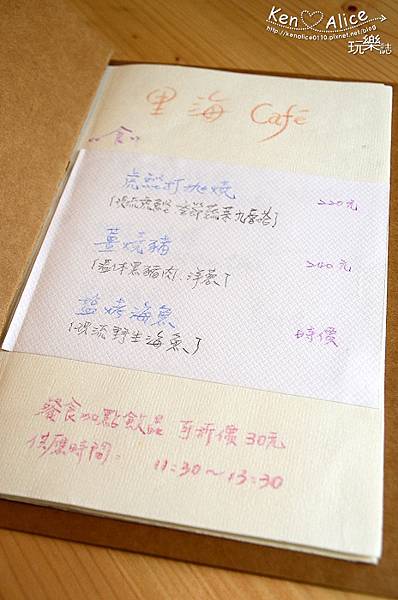 Ken♡Alice
http://kenalice0110.pixnet.net/blog
玩樂誌
里海 Café
"食"
虎鰹打拋燒 220元
「現流虎鰹 季節蔬菜九層塔」
薑燒豬 240元
「溫体黑豬肉、洋蔥」
盐烤海魚 時價
「現流野生海魚」
餐食加點飲品 可折價30元
供應時間: 11:30～13:30